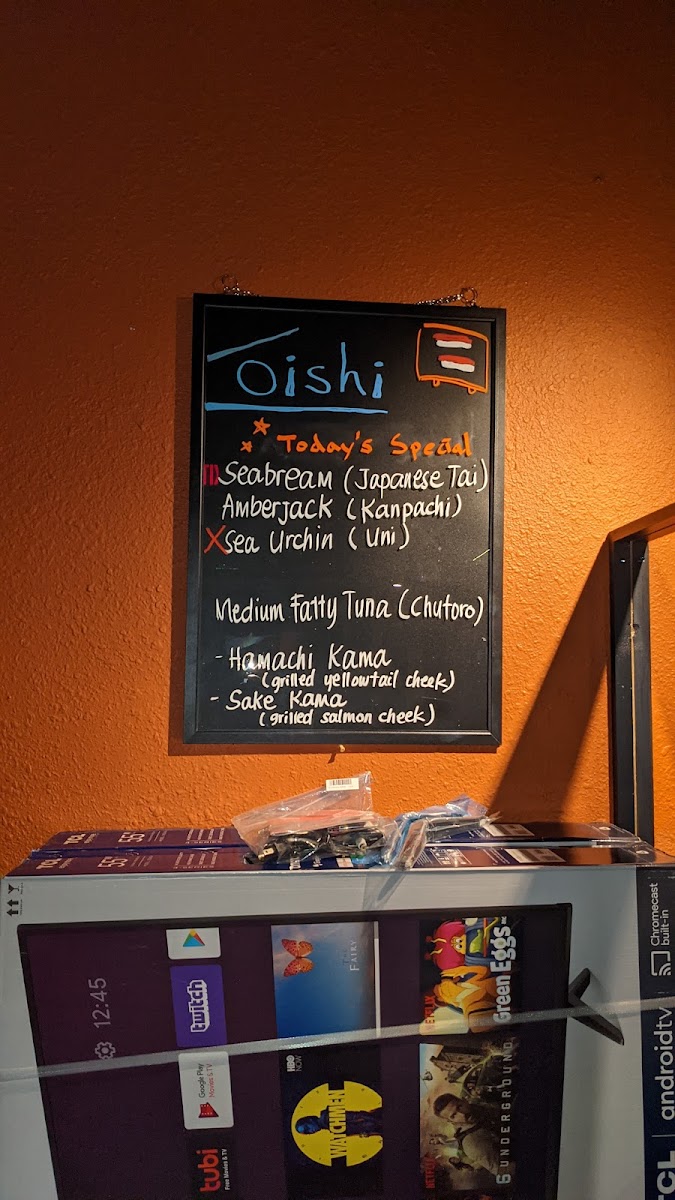 Oishi
Today's Special
Seabream (Japanese Tai)
Amberjack (Kanpachi)
X Sea Urchin (Uni)
Medium Fatty Tuna (Chutoro)
- Hamachi Kama
(grilled yellowtail cheek)
- Sake Kama
(grilled salmon cheek)
TCL
55"
TCL
55"
12:45
twitch
Google Play
Movies & TV
tubi
Free Movies & TV
FAIRY
HBO
NOW
WATCHMEN
NETFLIX
Green Eggs
NETFLIX
6 UNDERGROUND
Chromecast
built-in
TCL | androidtv